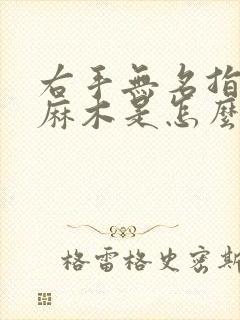 右手無名指
麻木是怎麼
格雷格史密斯